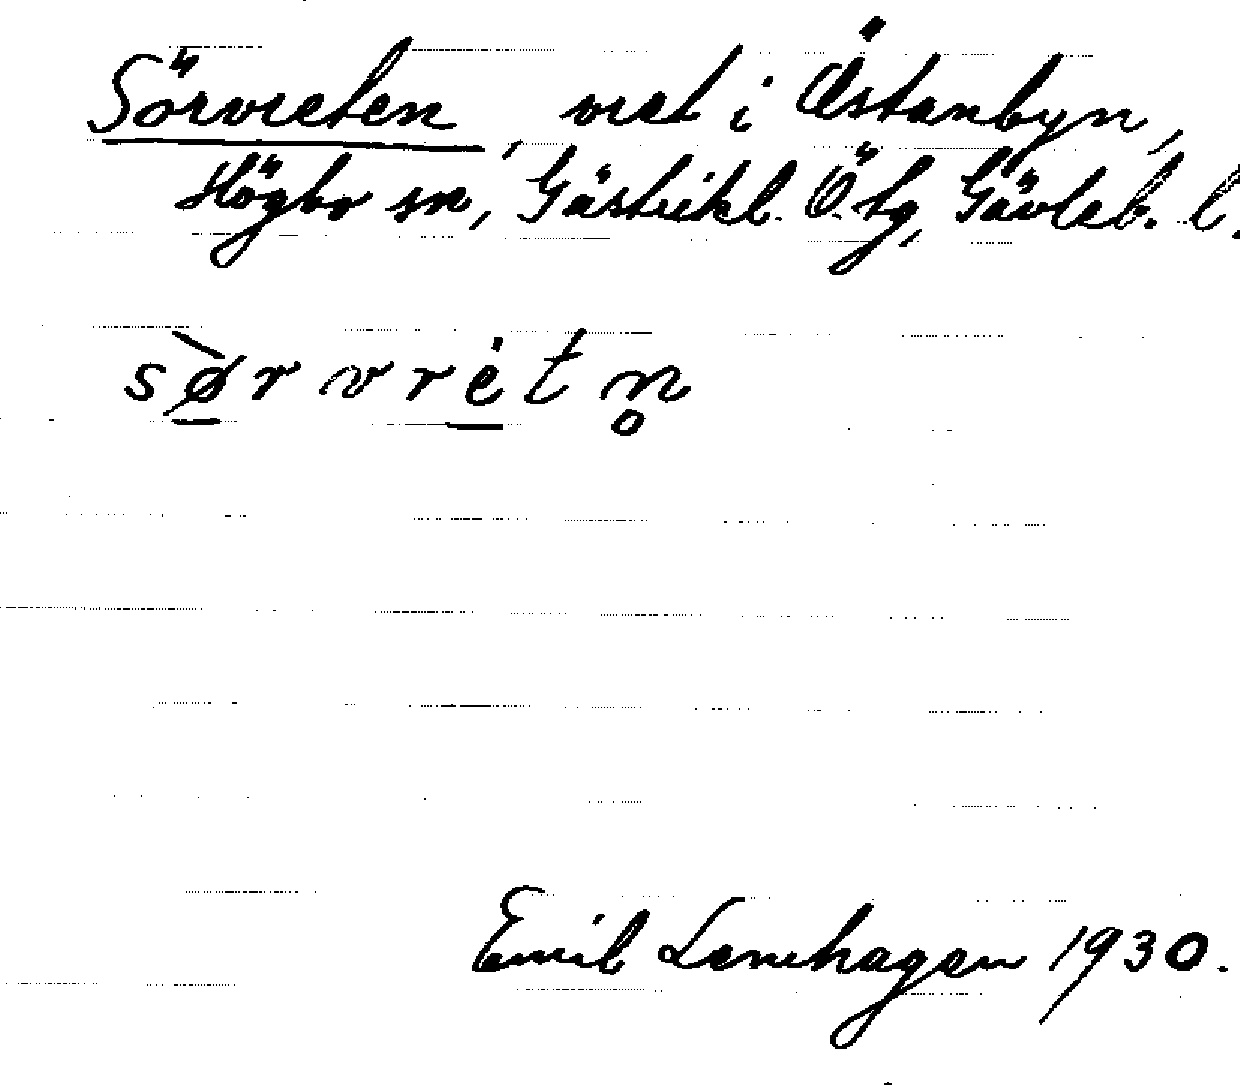 Sörvreten, vret i Östanbyn,
Högbo sn, Gästrikl. Ö. tg, Gävleb. l.
sø̀rvrétn̥
Emil Lenhagen 1930.